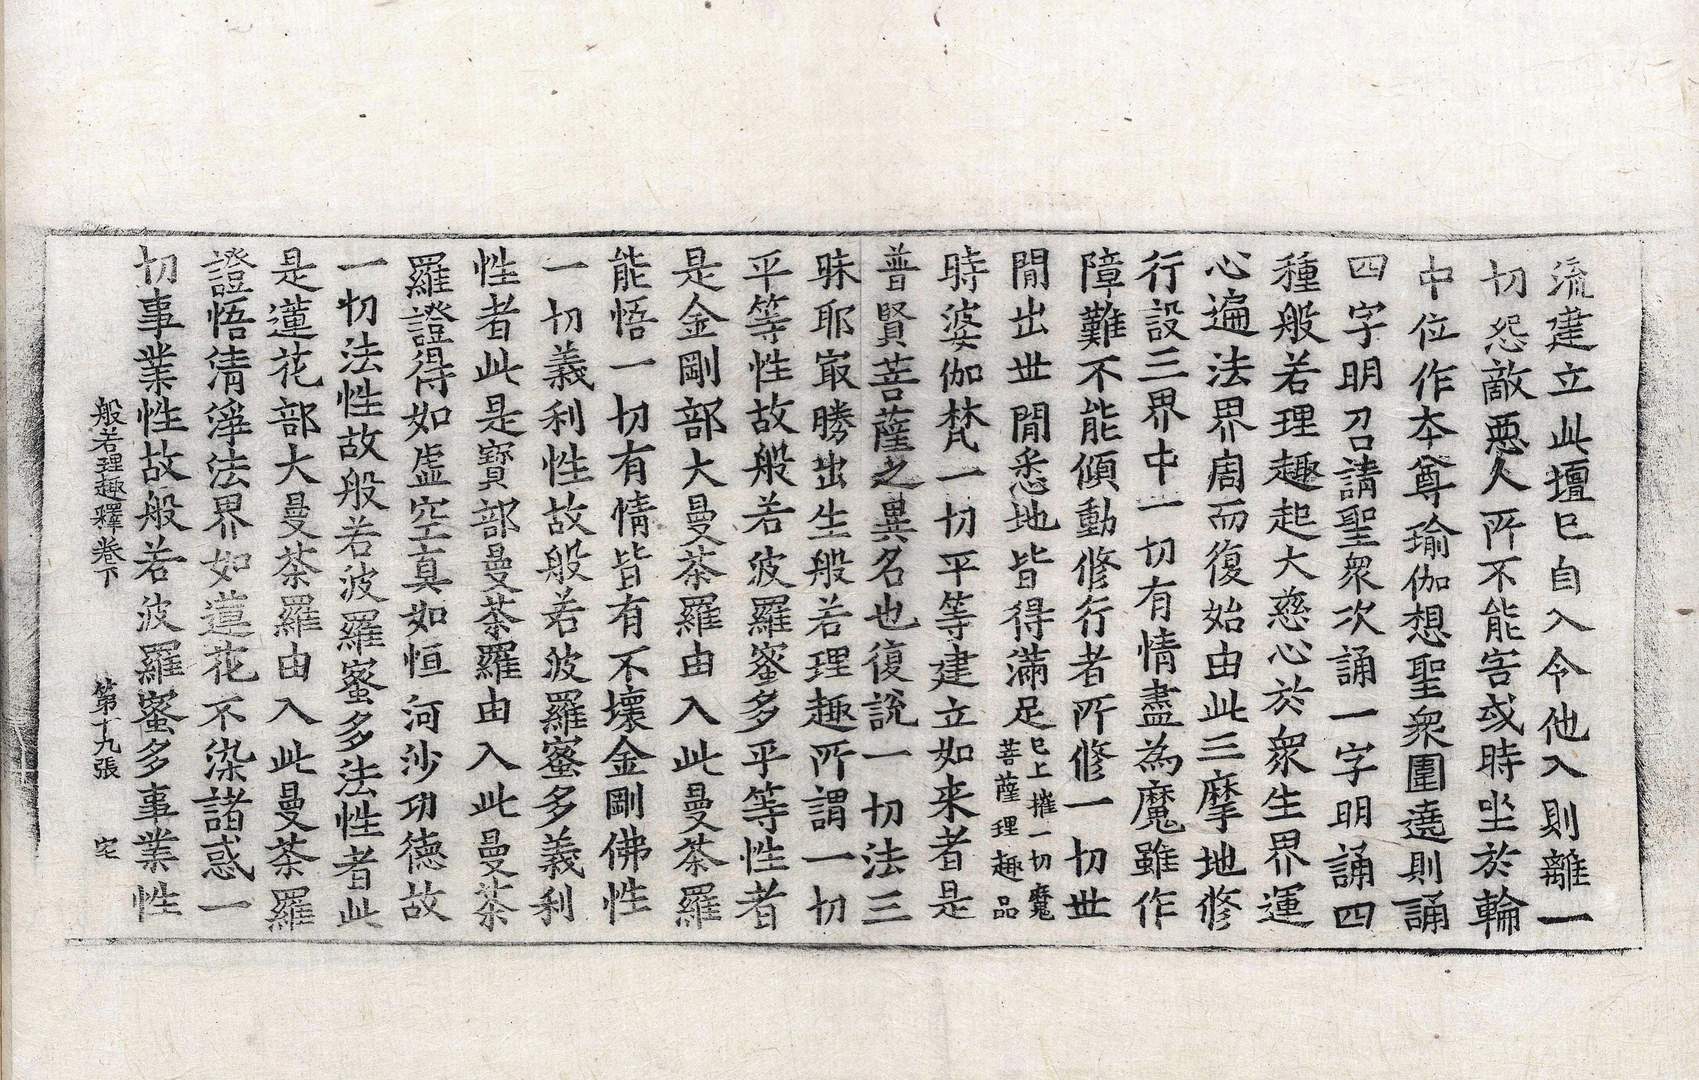 流建立此壇已自入令他入則離一
切怨敵惡人所不能害或時坐於輪
中位作夲尊瑜伽想聖衆圍遶則誦
四字明召請聖衆次誦一字明誦四
種般若理趣起大慈心於衆生界運
心遍法界周而復始由此三摩地修
行設三界中一切有情盡為魔雖作
障難不能傾動修行者所修一切世
閒出世閒悉地皆得滿足已上摧一切魔菩薩理趣品
時婆伽梵一切平等建立如来者是
普賢菩薩之異名也復説一切法三
昧耶㝡勝出生般若理趣所謂一切
平等性故般若波羅蜜多平等性者
是金剛部大曼荼羅由入此曼荼羅
能悟一切有情皆有不壞金剛佛性
一切義利性故般若波羅蜜多義利
性者此是寶部曼荼羅由入此曼荼
羅證得如虛空真如恒河沙功德故
一切法性故般若波羅蜜多法性者此
是蓮花部大曼荼羅由入此曼荼羅
證悟清淨法界如蓮花不染諸惑一
切事業性故般若波羅蜜多事業性
般若理趣釋卷下 第十九張 宅